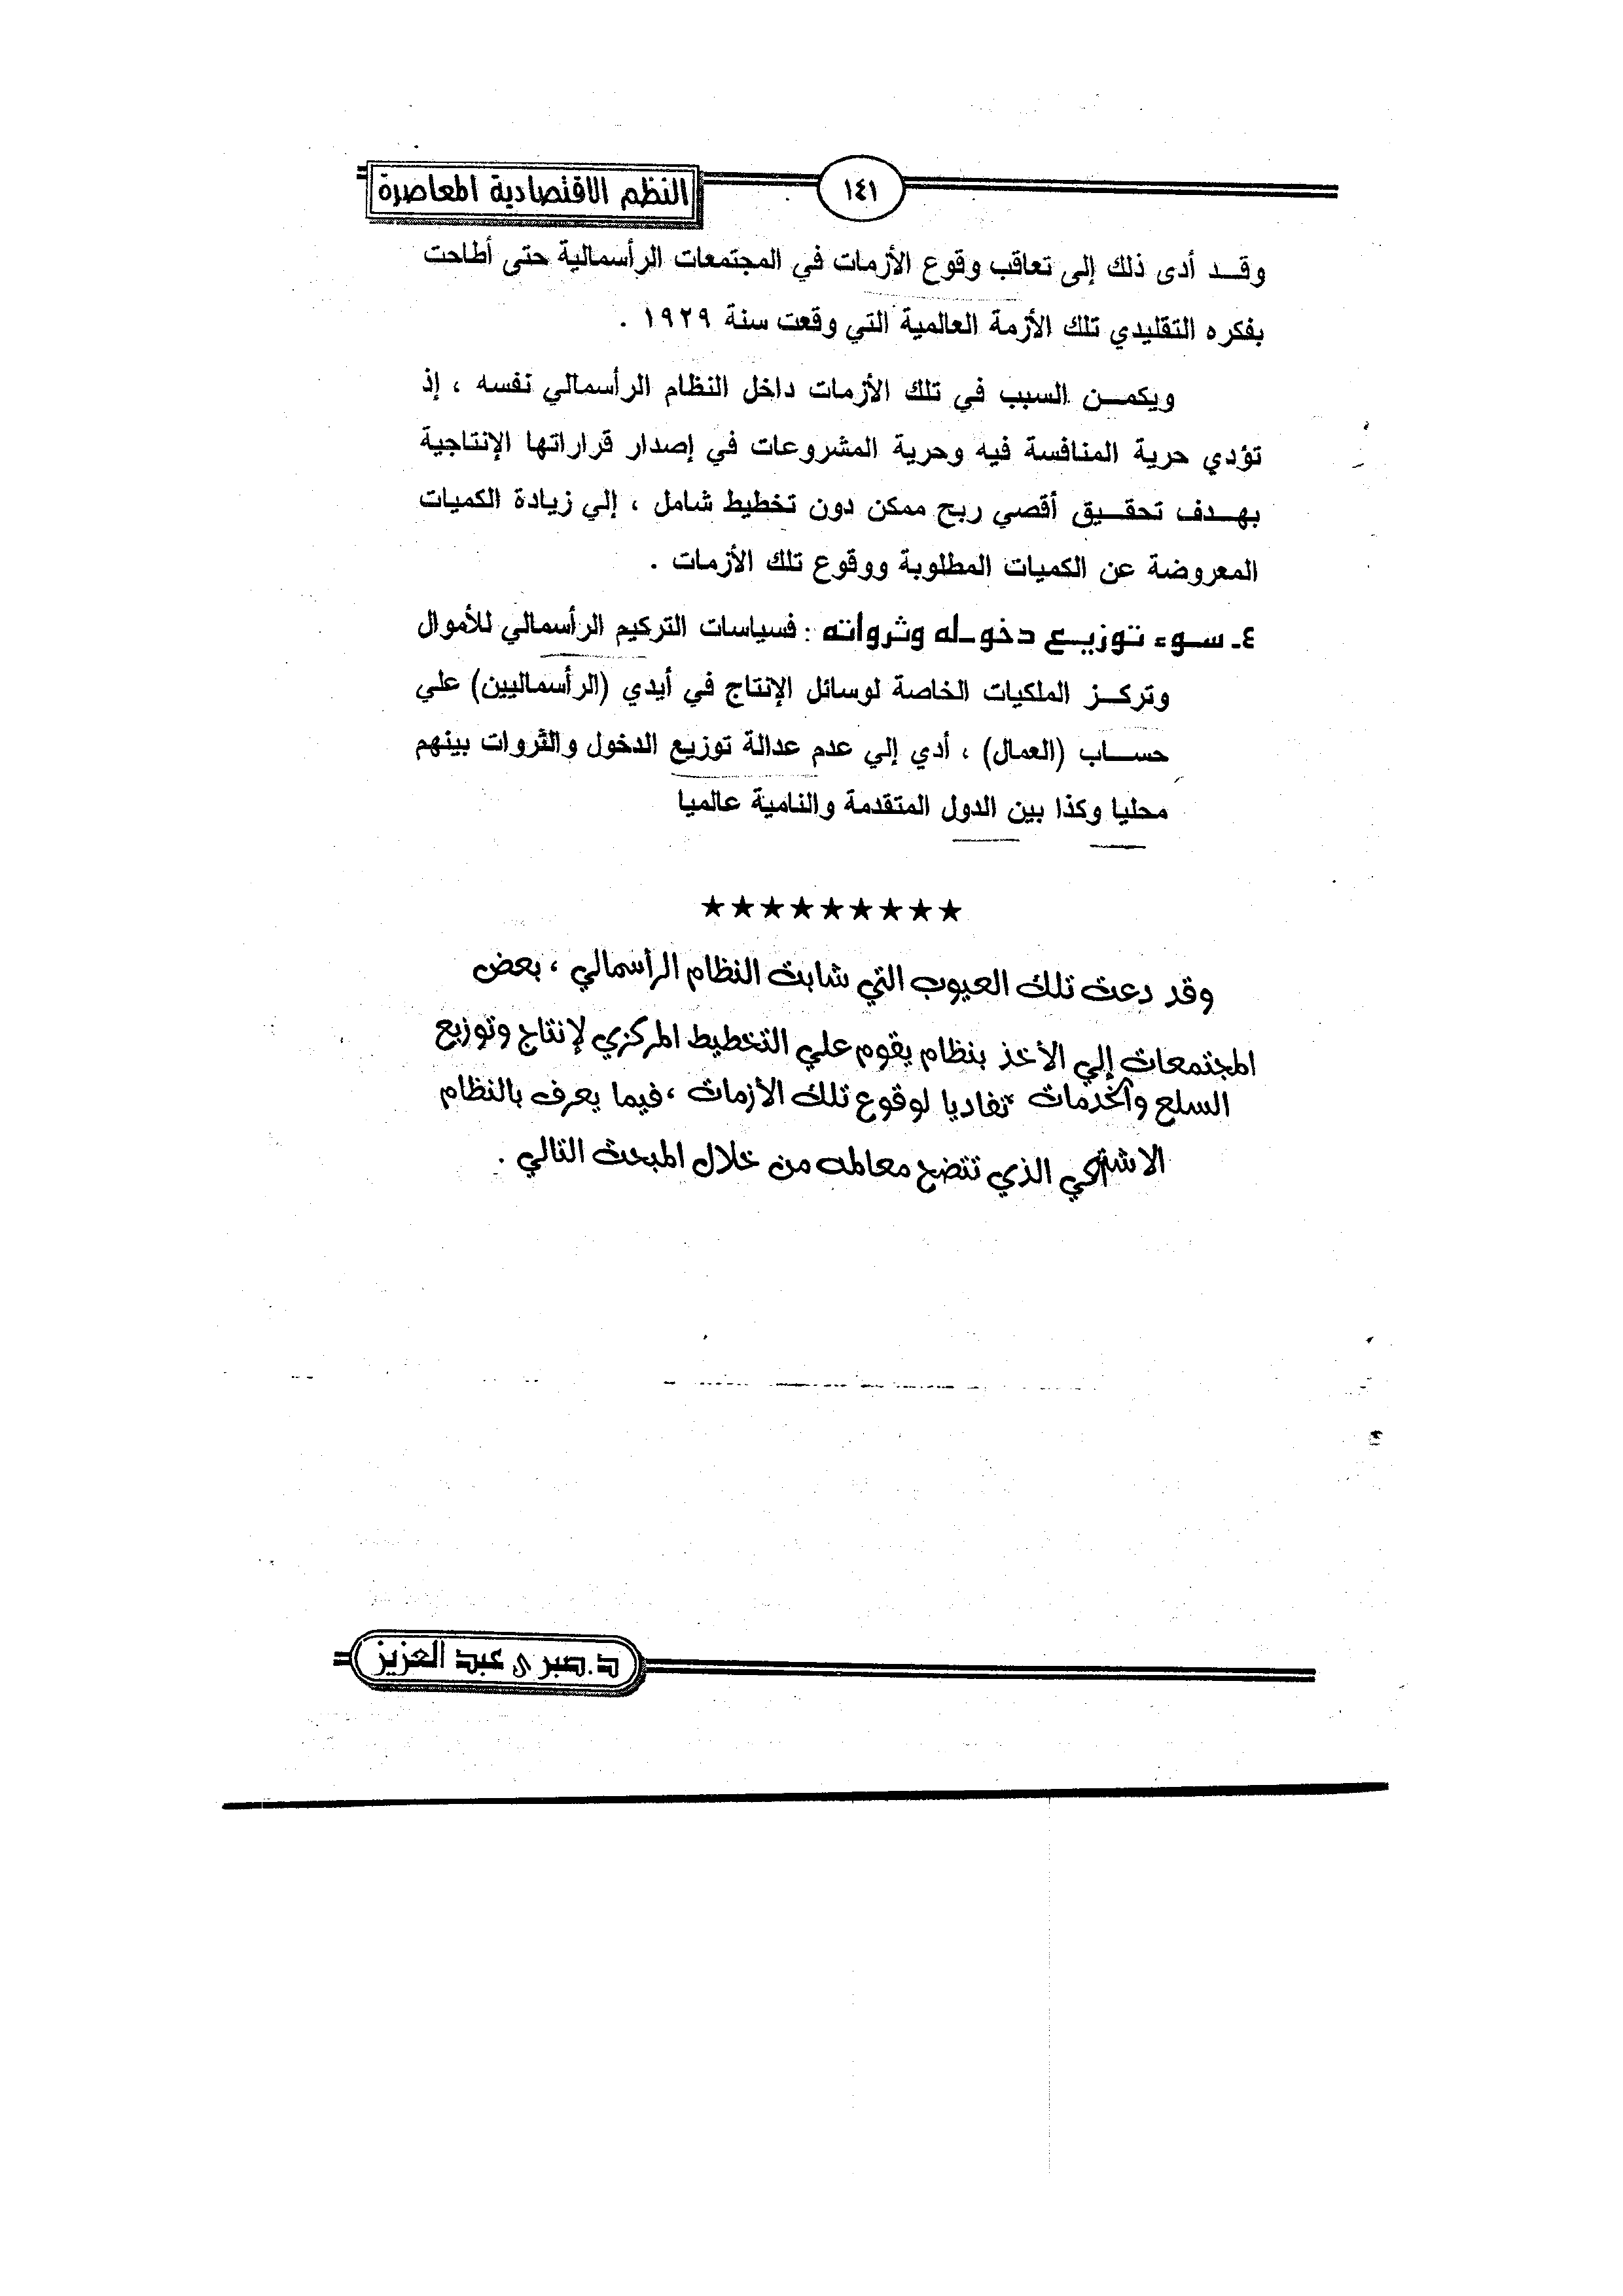 النظم الاقتصادية المعاصرة
١٤١
وقد أدى ذلك إلى تعاقب وقوع الأزمات في المجتمعات الرأسمالية حتى أطاحت
بفكره التقليدي تلك الأزمة العالمية التي وقعت سنة ١٩٢٩ .
ويكمن السبب في تلك الأزمات داخل النظام الرأسمالي نفسه ، إذ
تؤدي حرية المنافسة فيه وحرية المشروعات في إصدار قراراتها الإنتاجية
بهدف تحقيق أقصي ربح ممكن دون تخطيط شامل ، إلي زيادة الكميات
المعروضة عن الكميات المطلوبة ووقوع تلك الأزمات .
٤ـ سوء توزيع دخوله وثرواته : فسياسات التركيم الرأسمالي للأموال
وتركز الملكيات الخاصة لوسائل الإنتاج في أيدي (الرأسماليين) علي
حساب (العمال) ، أدي إلي عدم عدالة توزيع الدخول والثروات بينهم
محليا وكذا بين الدول المتقدمة والنامية عالميا
★★★★★★★★★
وقد دعت تلك العيوب التي شابت النظام الرأسمالي ، بعض
المجتمعات إلي الأخذ بنظام يقوم علي التخطيط المركزي لإنتاج وتوزيع
السلع والخدمات تفاديا لوقوع تلك الأزمات ، فيما يعرف بالنظام
الاشتراكي الذي تتضح معالمه من خلال المبحث التالي .
د.صبرى عبد العزيز